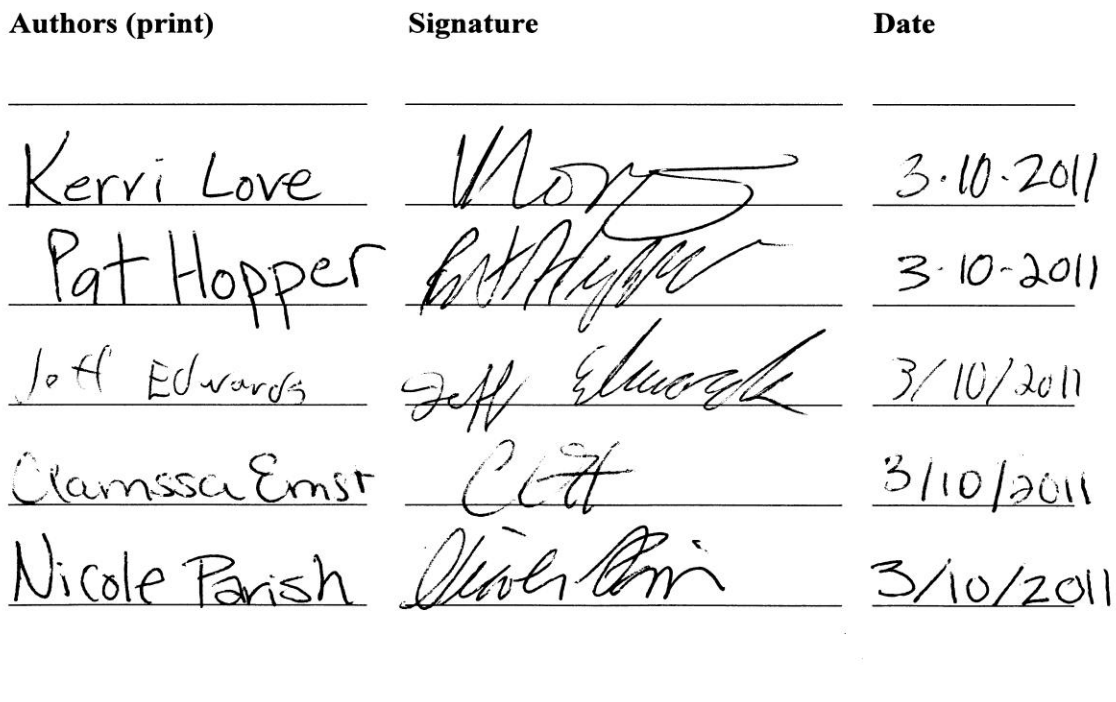 Authors (print) Signature Date
Kerri Love 3·10·2011
Pat Hopper Pat Hopper 3·10-2011
Jeff Edwards Jeff Edwards 3/10/2011
Ernst 3/10/2011
Nicole Parish Nicole Parish 3/10/2011